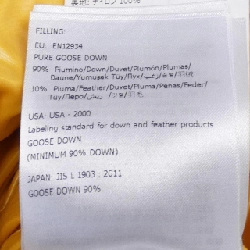 100%
FILLING:
EU: EN12934
PURE GOOSE DOWN
90% Piumino/Down/Duvet/Plumón/Plumas/
Daune/Yumuşak Tüy/Пух/زغب/羽绒
10% Piuma/Feather/Duvet/Pluma/Penas/Feder/
Tüy/Перо/ريش/羽毛
USA: USA - 2000
Labeling standard for down and feather products
GOOSE DOWN
(MINIMUM 90% DOWN)
JAPAN: JIS L 1903 : 2011
GOOSE DOWN 90%